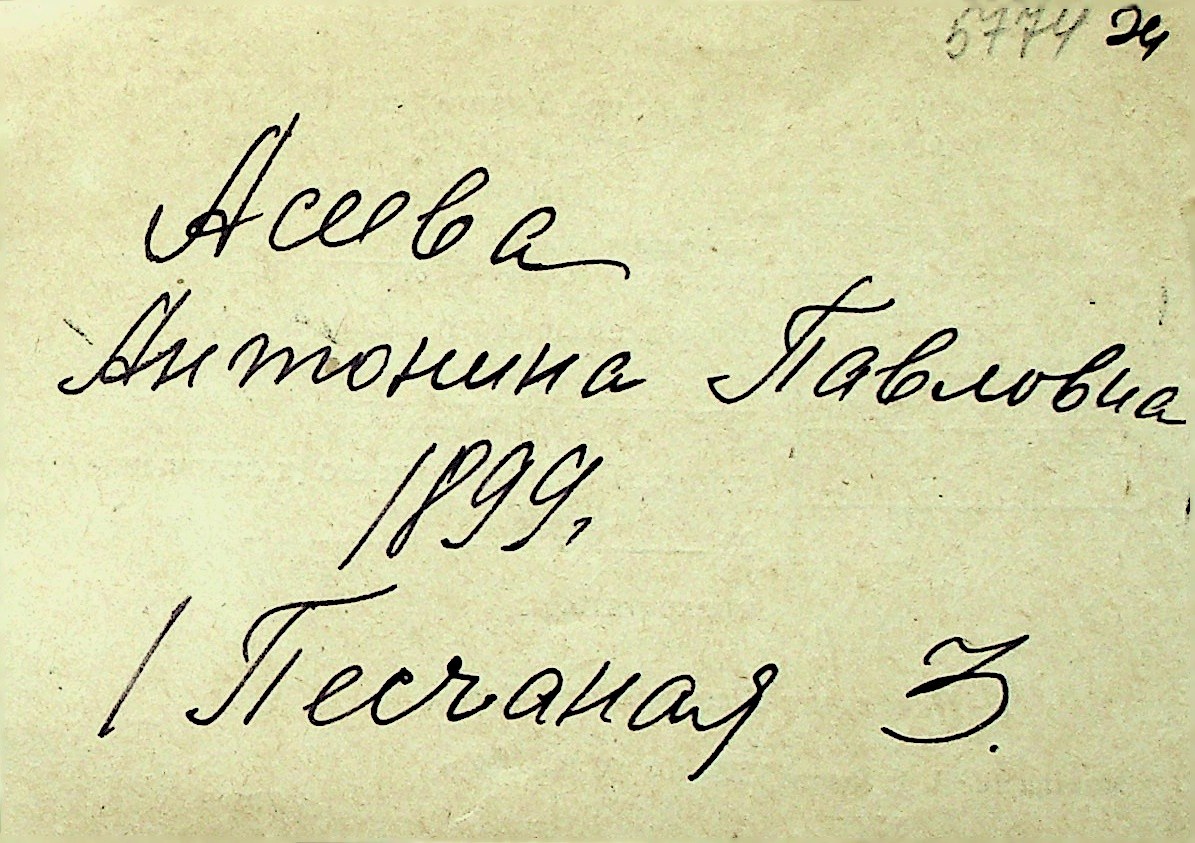 5774 24
Асеева
Антонина Павловна
1899,
1 Песчаная 3.